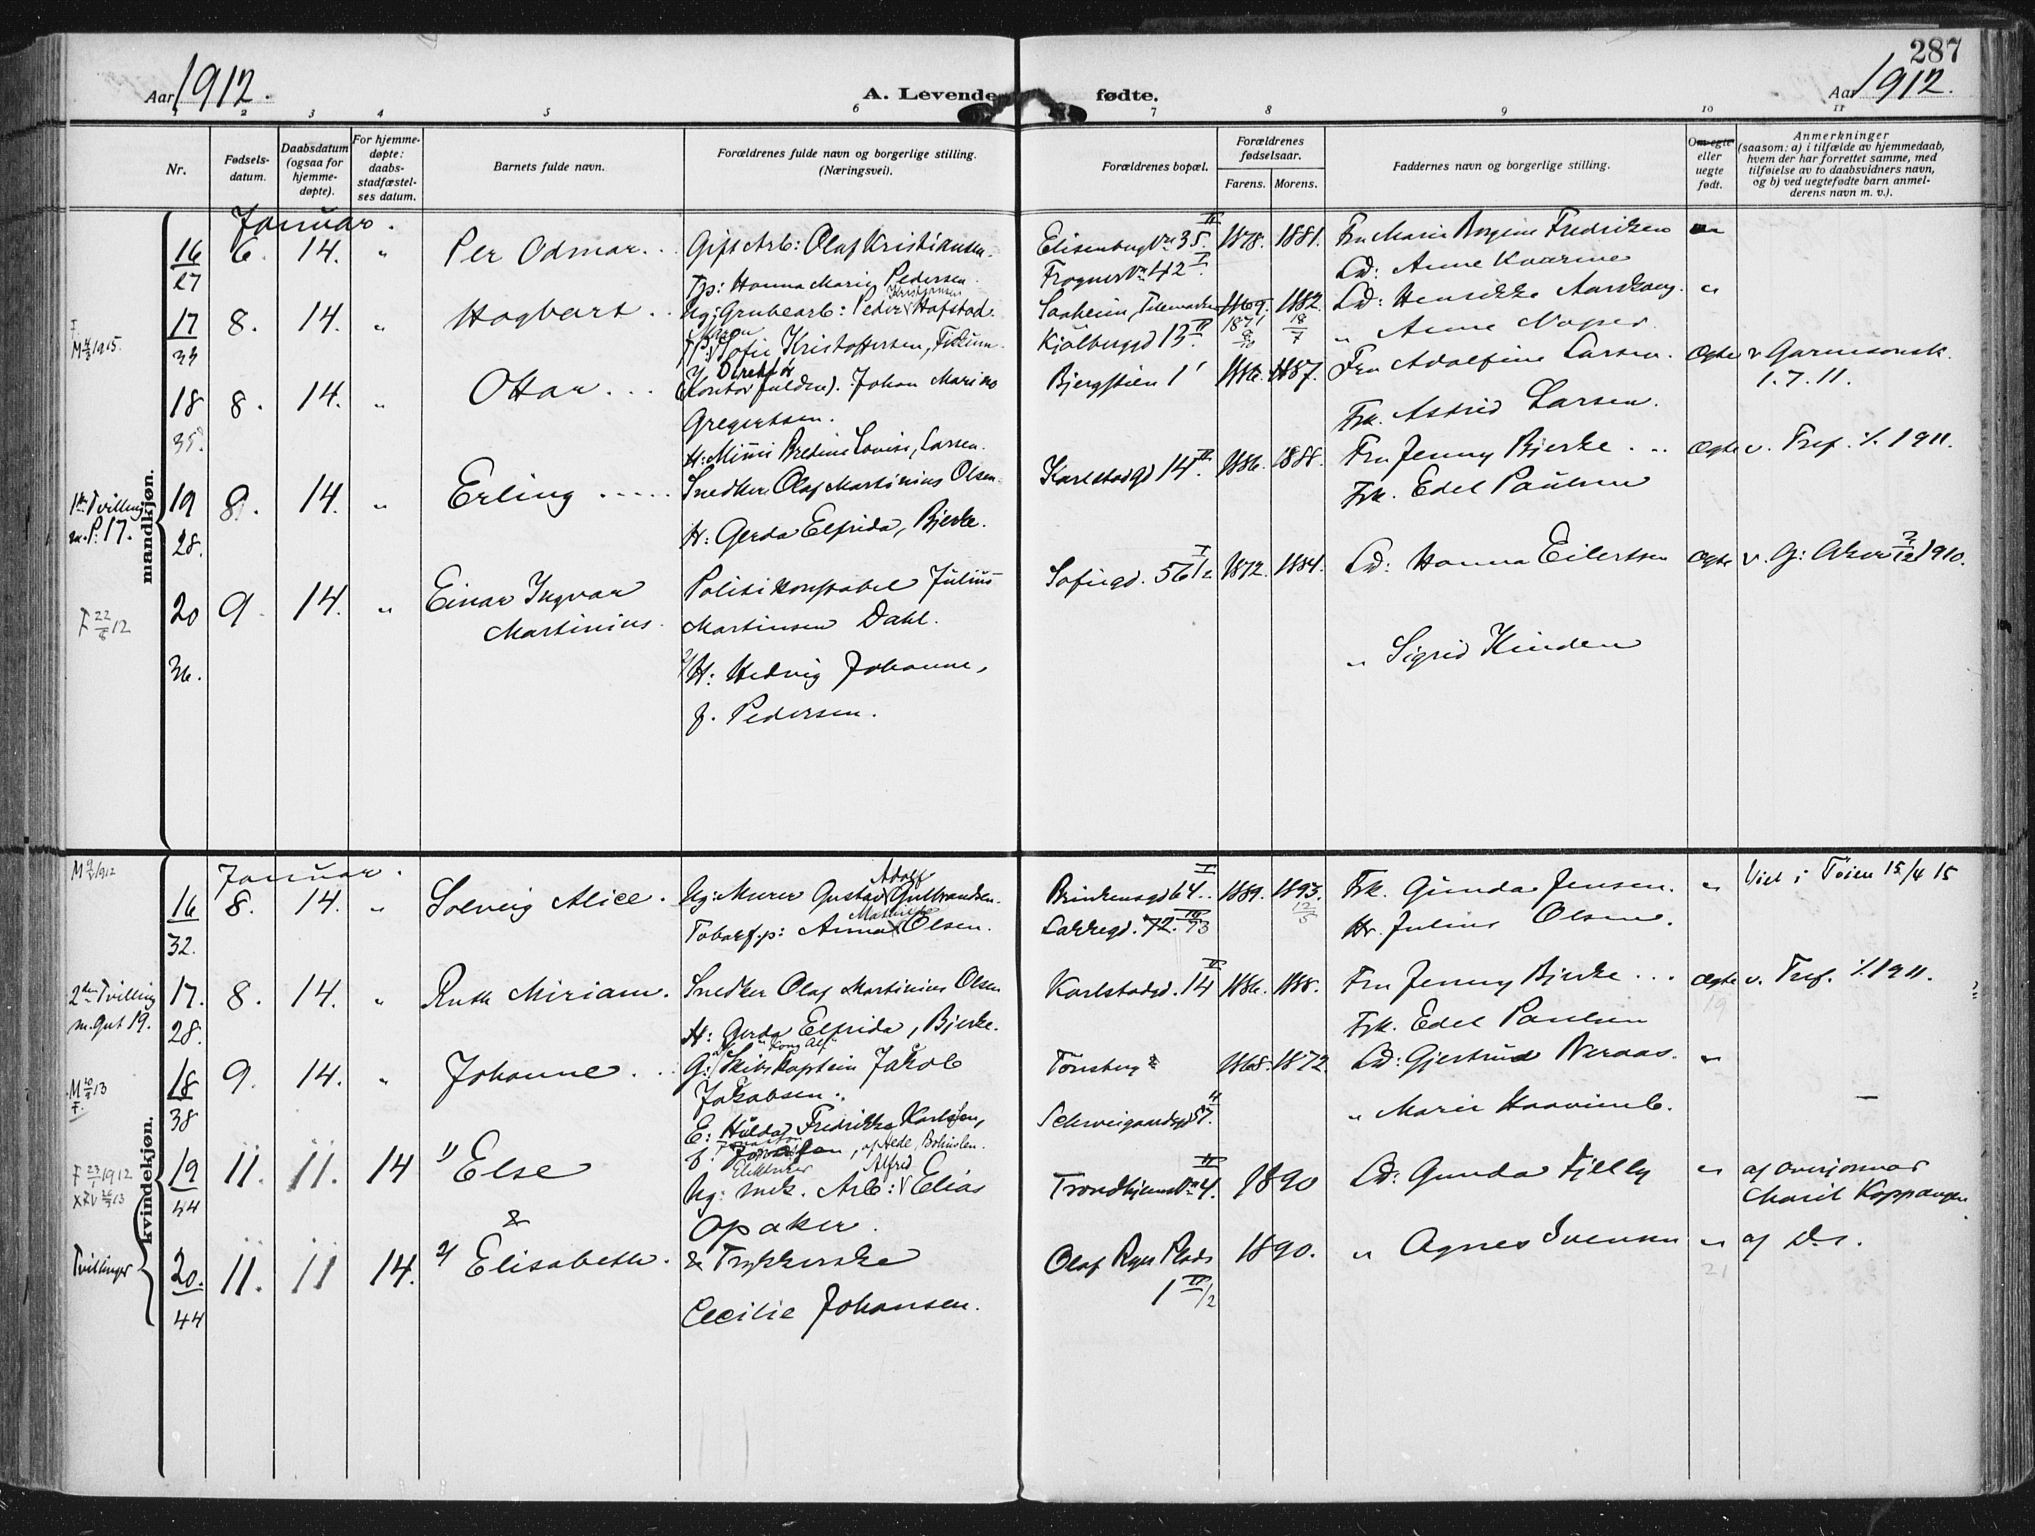 287
Aar 1912.
A. Levende fødte.
Aar 1912.
1 2 3 4 5 6 7 8 9 10 11
Nr.
Fødsels-
datum.
Daabsdatum
(ogsaa for
hjemme-
døpte).
For hjemme-
døpte:
daabs-
stadfæstel-
ses datum.
Barnets fulde navn.
Forældrenes fulde navn og borgerlige stilling.
(Næringsvei).
Forældrenes bopæl.
Forældrenes
fødselsaar.
Farens. Morens.
Faddernes navn og borgerlige stilling.
Om egte
eller
uegte
født.
Anmerkninger
(saasom: a) i tilfælde av hjemmedaab,
hvem der har forrettet samme, med
tilføielse av to daabsvidners navn,
og b) ved uegtefødte barn anmel-
derens navn m. v.).
mandkjøn.
Januar.
16
27
6. 14. "
Per Odmar
Gift Arb: Olaf Kristiansen.
Tp: Hanna Marie Pedersen.
Elisenbergvn 35 II
Frognervn 42 I
1878. 1881.
Fru Marie Fredriksen
Ld: Anne Kvarme
17
33
8. 14. "
Hagbart
Ug: Grubearb: Peder Kristiansen Hofstad.
Sofie Kristoffersen,
Saaheim, Telemarken
Kjølberggd 13 II
1869. 1882.
1871 18/7
Ld: Henrikke
" Anne
"
18
35
8. 14. "
Ottar
Direktør
Johan Marino
Gregertsen.
H: Mimi Bredine Lovise, Larsen.
Bjergstien 1
1886. 1887.
Fru Adolfine Larsen.
Frk. Astrid Larsen.
Ægte v. Garnisonsk.
1.7.11.
1ste Tvilling
m. P: 17.
19
28.
8. 14. "
Erling
Snedker Olaf Martinius Olsen
H: Gerda Elfrida, Bjerke.
Karlstadgd 14 II
1886. 1888.
Fru Jenny Bjerke
Frk. Edel Paulsen
Ægte v. Tref. 1911.
F 22/5 12
20
36.
9. 14. "
Einar Ingvar
Martinius.
Politikonstabel Julius
Martinsen Dahl.
H: Hedvig Johanne,
f. Pedersen.
Sofiegd. 56 I 1/2
1872. 1884.
Ld: Hanna Eilertsen
" Sigrid Hinden
Ægte v. G: Aker 1910.
kvindekjøn.
Januar.
16
32.
8. 14. "
Solveig Alice.
Ug: Murer Gustav Adolf Gulbrandsen.
Tobarb.p: Anna Mathilde Olsen.
Brinkensgd 64. I
Lakkegd. 72. 73 IV
1889. 1893.
12/5
Frk. Gunda Jensen.
Hr. Julius Olsen.
" Viet i Tøien 15/4 15
2den Tvilling
m. Gut 19.
17.
28.
8. 14. "
Ruth Miriam.
Snedker Olaf Martinius Olsen
H: Gerda Elfrida, Bjerke.
Karlstadgd. 14 II
1886. 1888.
Fru Jenny Bjerke
Frk. Edel Paulsen
Ægte v. Tref. 1911.
19
18
38
9. 14. "
Johanne
G: Skibskaptein "Kong Alf" Jakob
Jakobsen.
E: Hilda Fredrikke Karlsen,
Tønsberg
Schweigaardsgd 57. II
1868. 1872
Ld: Gjertrud Neraas.
" Marie Haavimb.
"
19
44
11. 11. 14
1) Else
&
Elektriker
Ug: mek. Arb: Alfred Elias
Opaker.
& Trykkerske
Cecilie Johansen.
Trondhjemsvn 4. II
1890
Ld: Gunda Fjelly
" af overjormor
Marit Koppangen.
Tvillinger
20.
44
11. 11 14.
2) Elisabeth.
Olaf Ryes Plads
1 II 1/2
1890.
" Agnes Svensen
" af Ds.
21